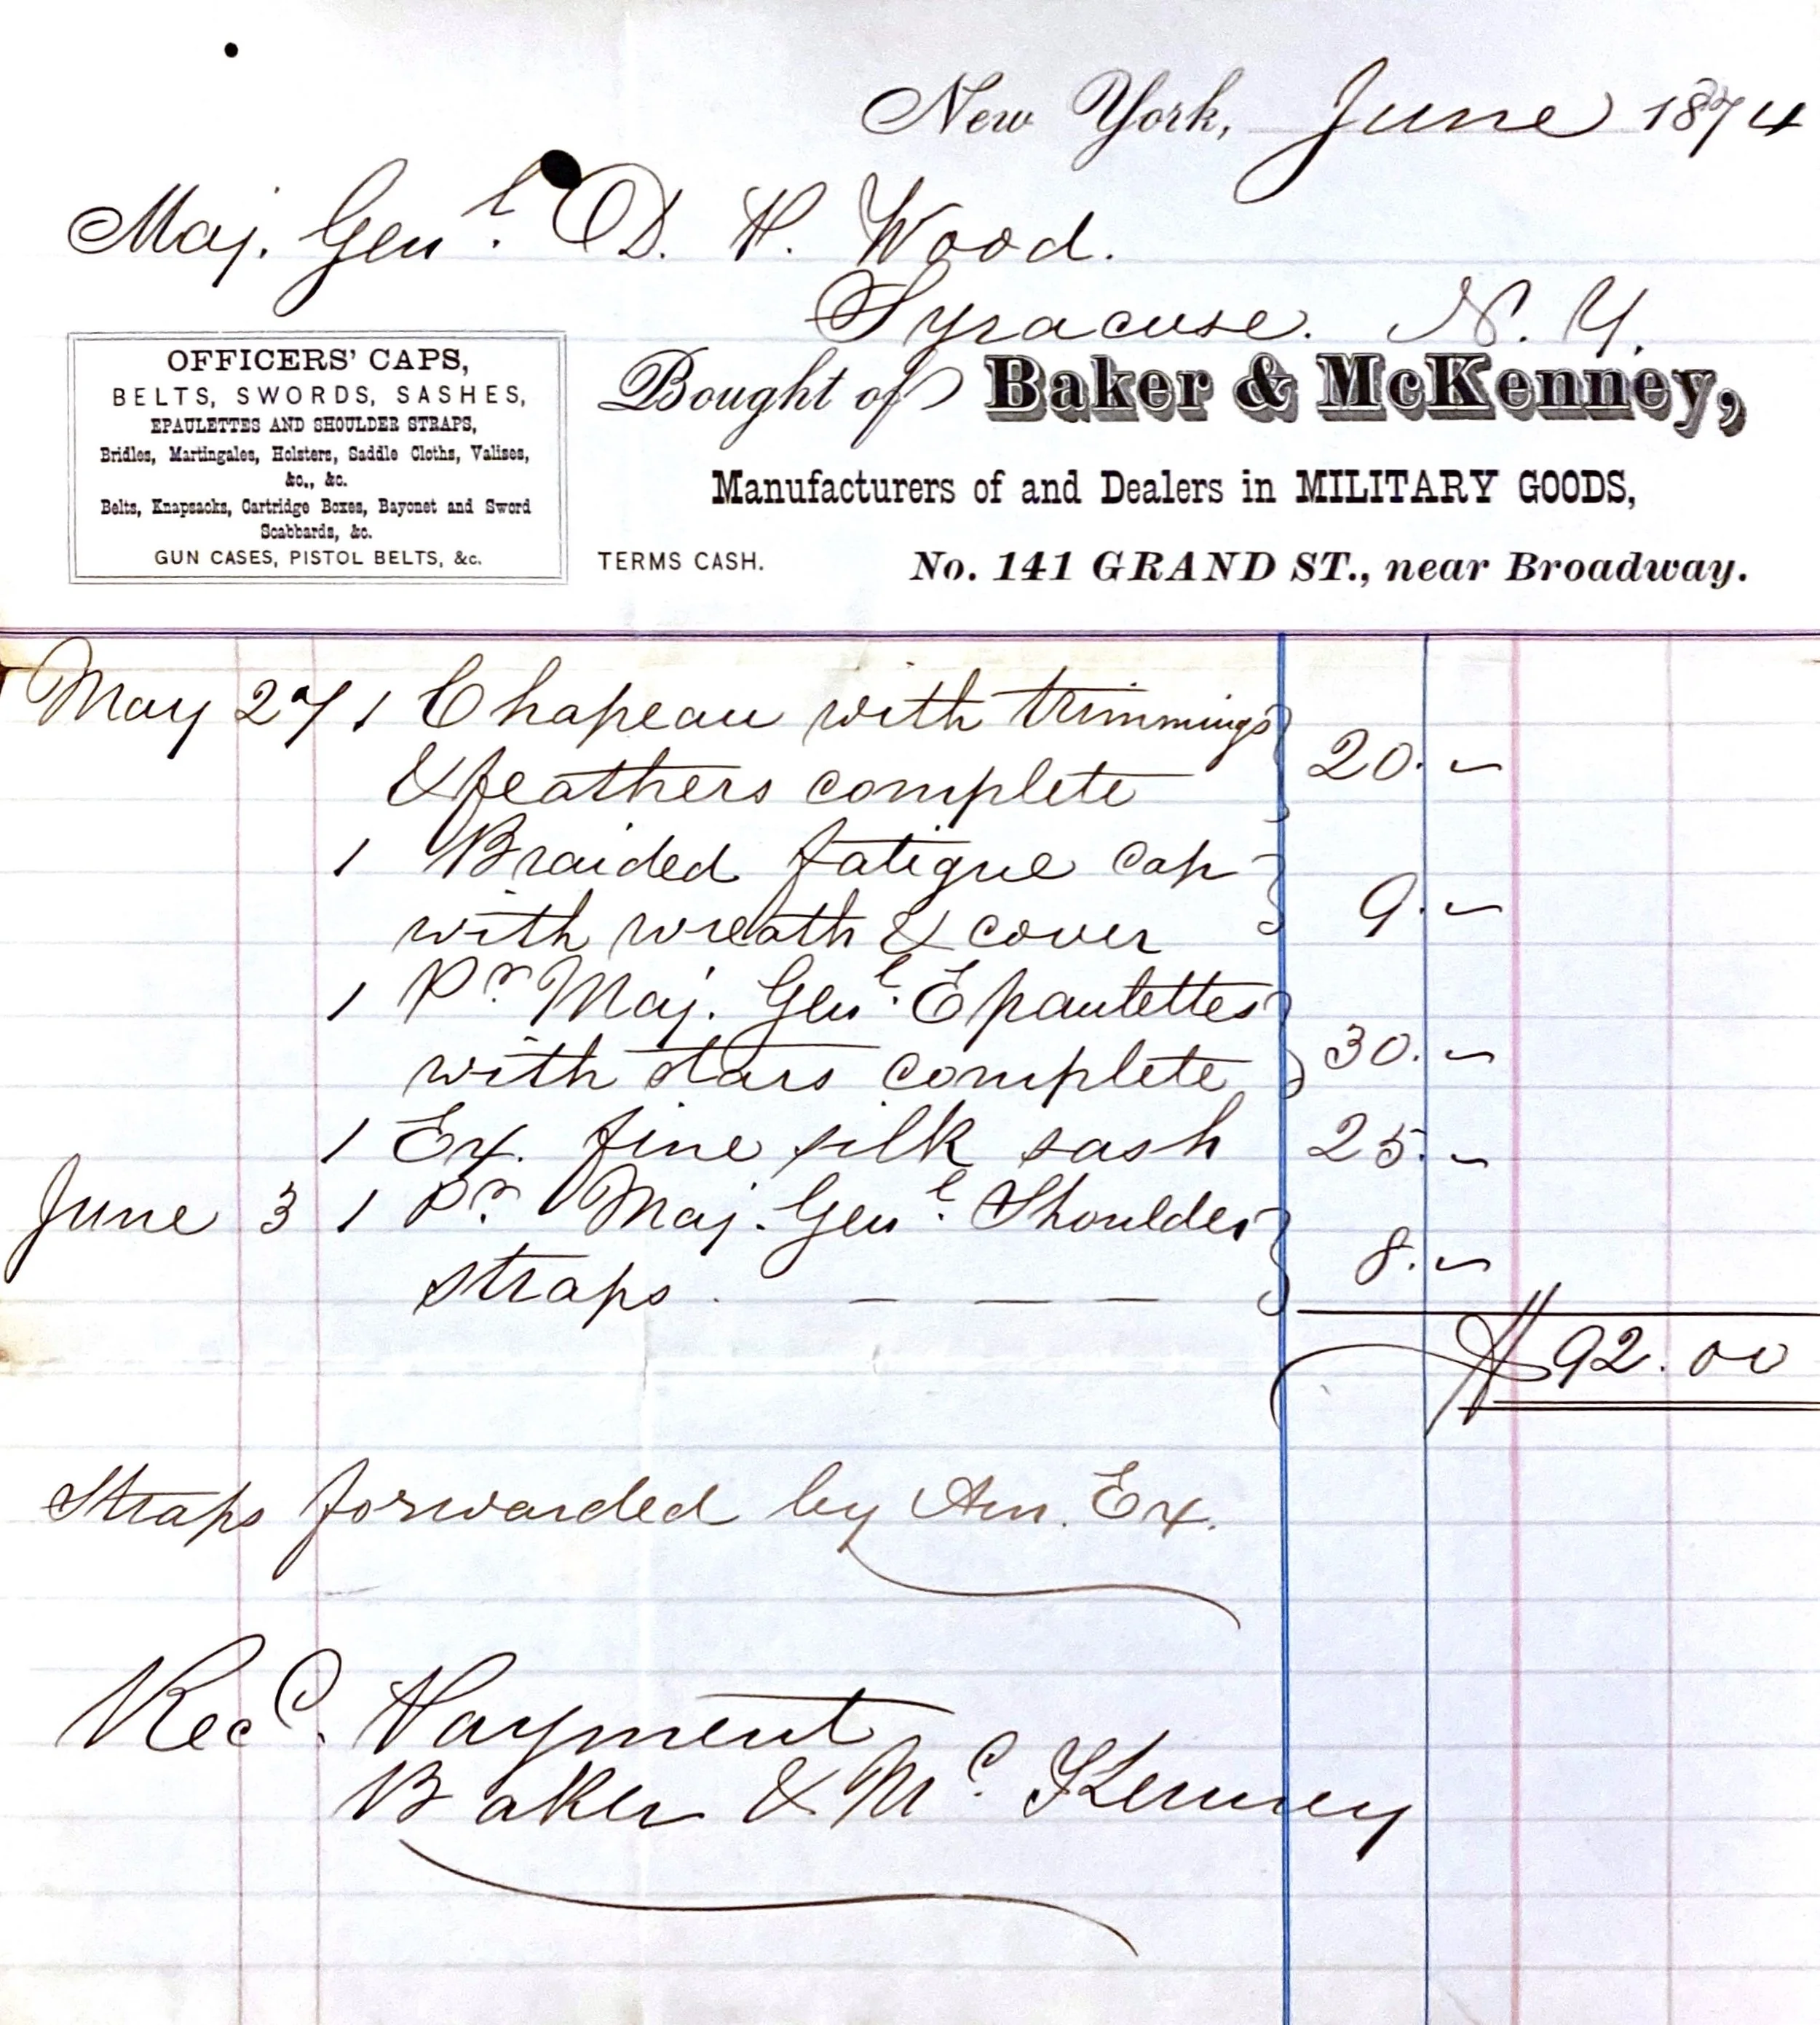 New York, June 1874
Maj. Genl. D. H. Wood.
Syracuse. N. Y.
OFFICERS' CAPS,
BELTS, SWORDS, SASHES,
EPAULETTES AND SHOULDER STRAPS,
Bridles, Martingales, Holsters, Saddle Cloths, Valises,
&c., &c.
Belts, Knapsacks, Cartridge Boxes, Bayonet and Sword
Scabbards, &c.
GUN CASES, PISTOL BELTS, &c.
Bought of Baker & McKenney,
Manufacturers of and Dealers in MILITARY GOODS,
TERMS CASH. No. 141 GRAND ST., near Broadway.
May 27 1 Chapeau with trimmings
& feathers complete 20. –
1 Braided fatigue cap
with wreath & cover 9. –
1 Pr. Maj. Genl. Epaulettes
with stars complete 30. –
1 Ex. fine silk sash 25. –
June 3 1 Pr. Maj. Genl. Shoulder
straps. – – – 8. –
$92.00
Straps forwarded by Am. Ex.
Recd. Payment
Baker & Mc. Kenney